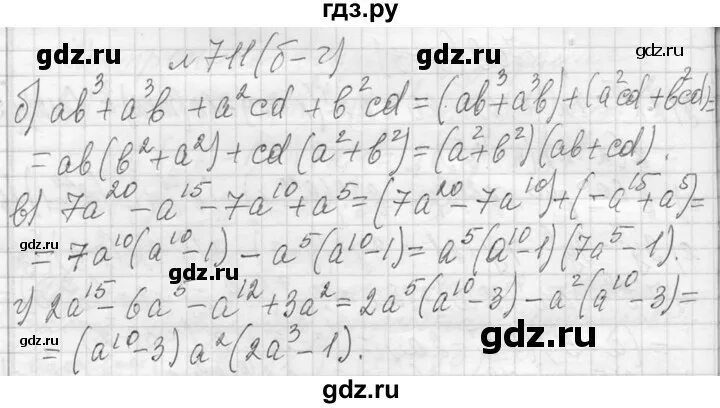 гдз.ру
gdz.ru gdz.ru
№ 711 (б-г)
б) ab³ + a³b + a²cd + b²cd = (ab³ + a³b) + (a²cd + b²cd) =
= ab(b² + a²) + cd(a² + b²) = (a² + b²)(ab + cd).
в) 7a²⁰ - a¹⁵ - 7a¹⁰ + a⁵ = (7a²⁰ - 7a¹⁰) + (-a¹⁵ + a⁵) =
= 7a¹⁰(a¹⁰ - 1) - a⁵(a¹⁰ - 1) = a⁵(a¹⁰ - 1)(7a⁵ - 1).
gdz.ru
г) 2a¹⁵ - 6a⁵ - a¹² + 3a² = 2a⁵(a¹⁰ - 3) - a²(a¹⁰ - 3) =
gdz.ru
= (a¹⁰ - 3) a²(2a³ - 1).
gdz.ru
gdz.ru